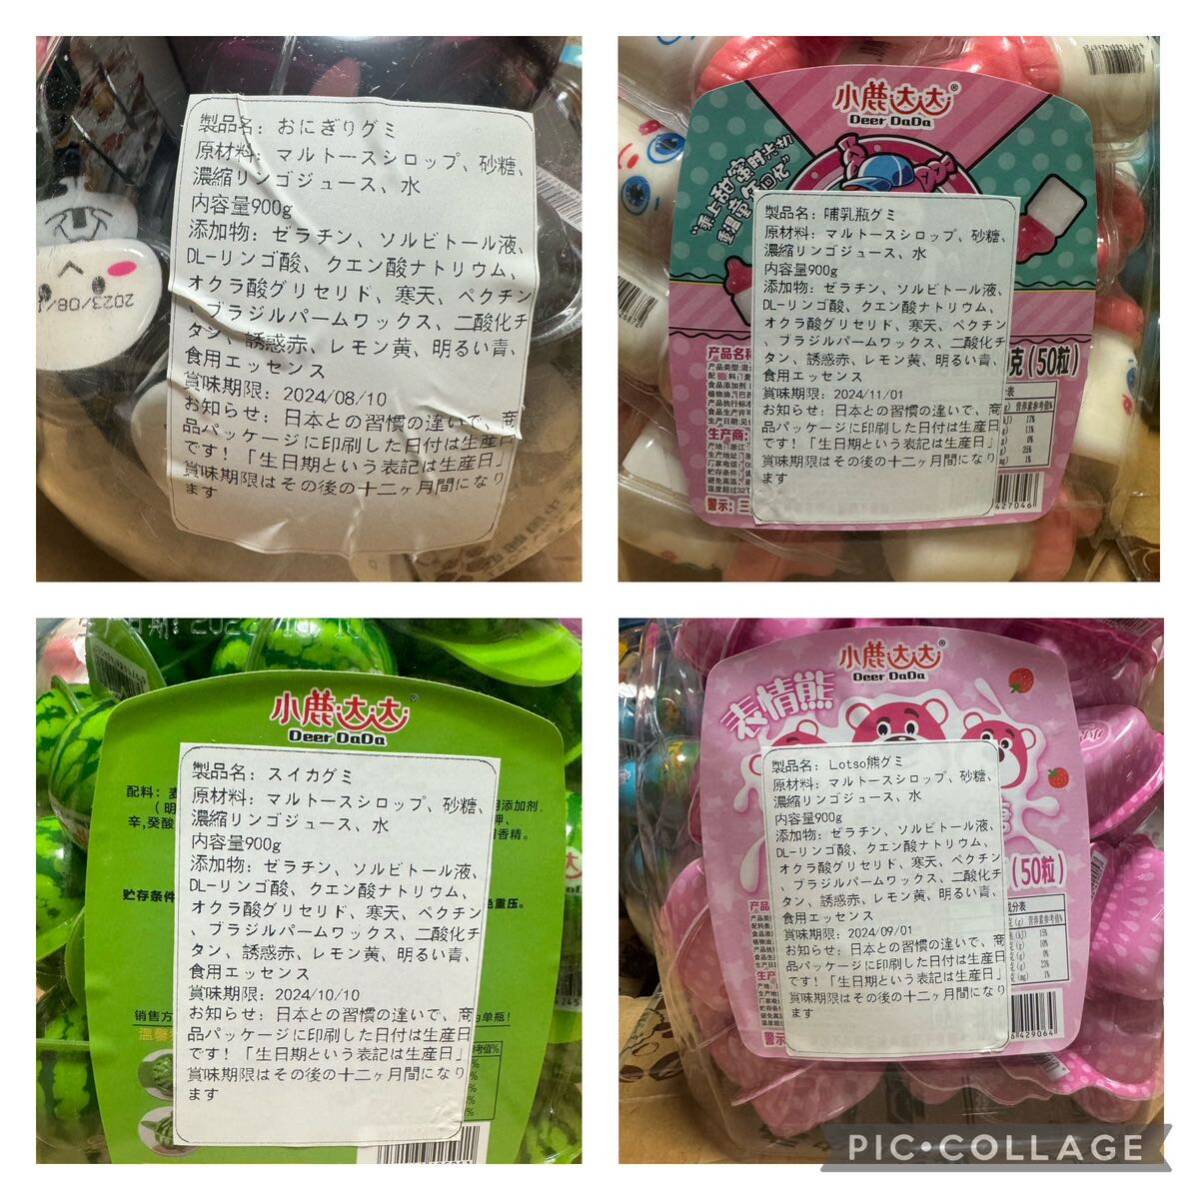 製品名: おにぎりグミ
原材料: マルトースシロップ、砂糖、
濃縮リンゴジュース、水
内容量900g
添加物: ゼラチン、ソルビトール液、
DL-リンゴ酸、クエン酸ナトリウム、
オクラ酸グリセリド、寒天、ペクチン
、ブラジルパームワックス、二酸化チ
タン、誘惑赤、レモン黄、明るい青、
食用エッセンス
賞味期限: 2024/08/10
お知らせ: 日本との習慣の違いで、商
品パッケージに印刷した日付は生産日
です! 「生日期という表記は生産日」
賞味期限はその後の十二ヶ月間になり
ます
小鹿达达®
Deer DaDa
製品名: 哺乳瓶グミ
原材料: マルトースシロップ、砂糖、
濃縮リンゴジュース、水
内容量900g
添加物: ゼラチン、ソルビトール液、
DL-リンゴ酸、クエン酸ナトリウム、
オクラ酸グリセリド、寒天、ペクチン
、ブラジルパームワックス、二酸化チ
タン、誘惑赤、レモン黄、明るい青、
食用エッセンス
賞味期限: 2024/11/01
お知らせ: 日本との習慣の違いで、商
品パッケージに印刷した日付は生産日
です! 「生日期という表記は生産日」
賞味期限はその後の十二ヶ月間になり
ます
克(50粒)
产品名称
生产商:
警示: 三
427046
小鹿达达®
Deer DaDa
配料:
贮存条件
重压。
销售方
製品名: スイカグミ
原材料: マルトースシロップ、砂糖、
濃縮リンゴジュース、水
内容量900g
添加物: ゼラチン、ソルビトール液、
DL-リンゴ酸、クエン酸ナトリウム、
オクラ酸グリセリド、寒天、ペクチン
、ブラジルパームワックス、二酸化チ
タン、誘惑赤、レモン黄、明るい青、
食用エッセンス
賞味期限: 2024/10/10
お知らせ: 日本との習慣の違いで、商
品パッケージに印刷した日付は生産日
です! 「生日期という表記は生産日」
賞味期限はその後の十二ヶ月間になり
ます
小鹿达达®
Deer DaDa
表情熊
製品名: Lotso熊グミ
原材料: マルトースシロップ、砂糖、
濃縮リンゴジュース、水
内容量900g
添加物: ゼラチン、ソルビトール液、
DL-リンゴ酸、クエン酸ナトリウム、
オクラ酸グリセリド、寒天、ペクチン
、ブラジルパームワックス、二酸化チ
タン、誘惑赤、レモン黄、明るい青、
食用エッセンス
賞味期限: 2024/09/01
お知らせ: 日本との習慣の違いで、商
品パッケージに印刷した日付は生産日
です! 「生日期という表記は生産日」
賞味期限はその後の十二ヶ月間になり
ます
(50粒)
429064
PIC•COLLAGE